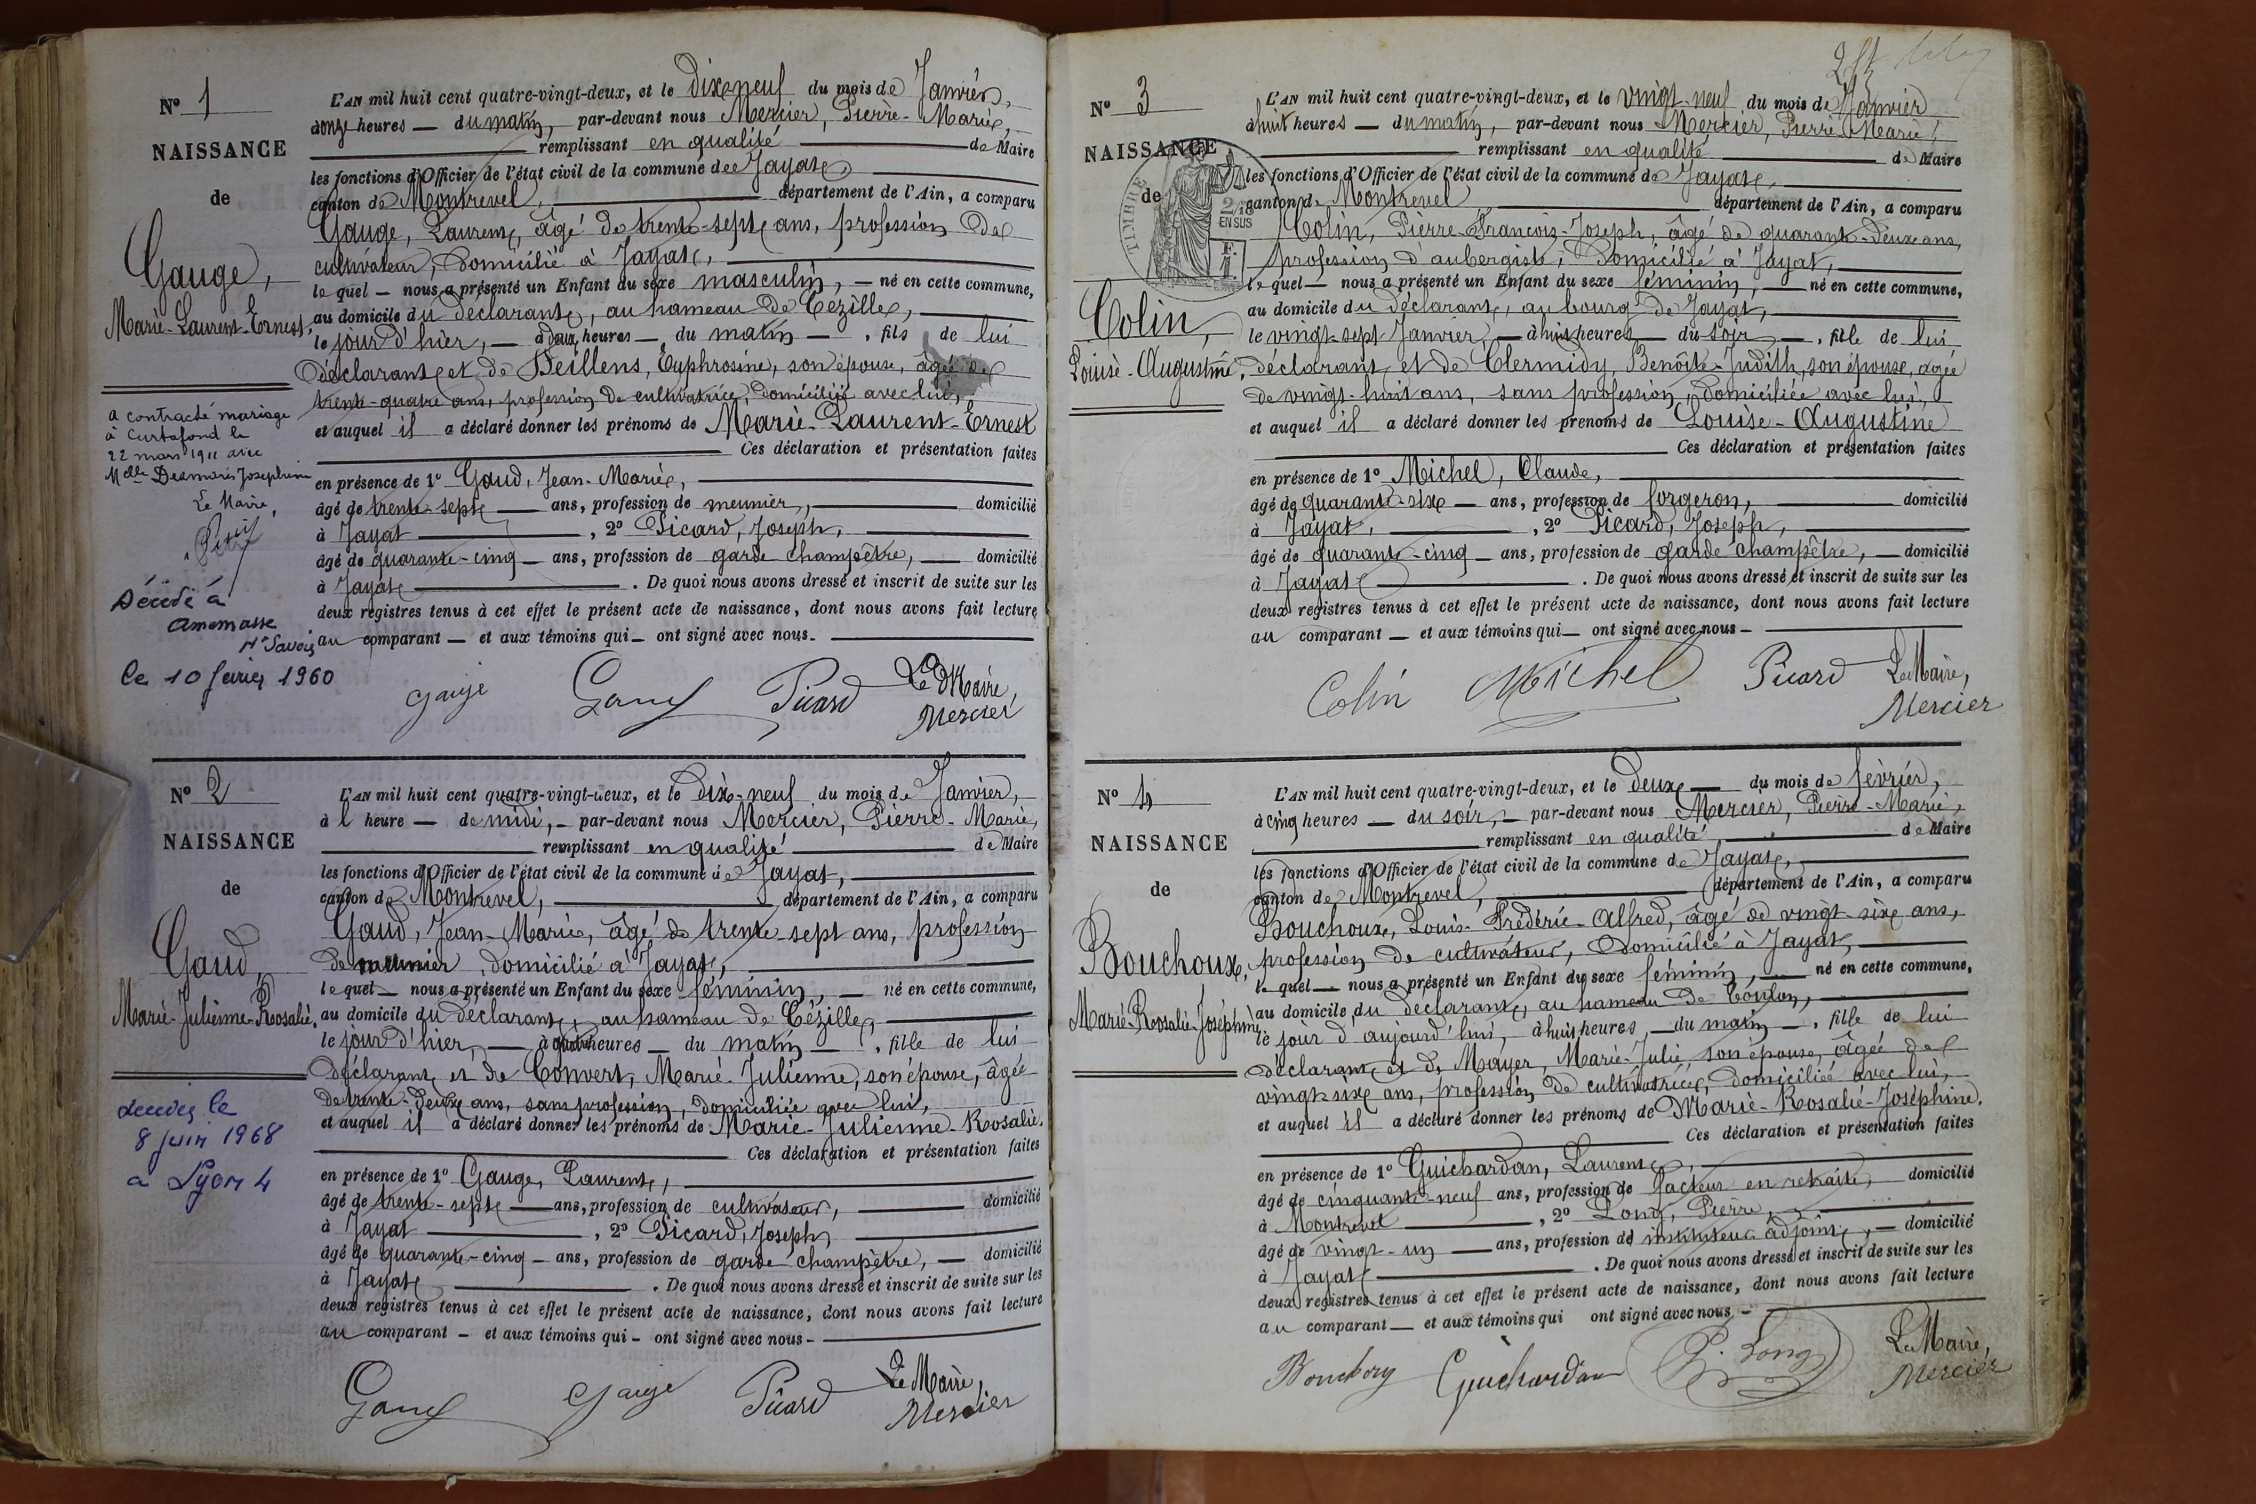 N° 1
NAISSANCE
de
Gauge,
Marie-Laurent-Ernest,
a contracté mariage
à Curtafond le
22 mars 1911 avec
Melle Desmaris Josephine
Le Maire,
Décédé à
Annemasse
Hte Savoie
le 10 février 1960
L'AN mil huit cent quatre-vingt-deux, et le dix-neuf du mois de Janvier,
à onze heures — du matin, par-devant nous Mercier, Pierre-Marie,
remplissant en qualité de Maire
les fonctions d'Officier de l'état civil de la commune de Jayat,
canton de Montrevel, département de l'Ain, a comparu
Gauge, Laurent, âgé de trente-sept ans, profession de
cultivateur, domicilié à Jayat,
le quel — nous a présenté un Enfant du sexe masculin, — né en cette commune,
au domicile du déclarant, au hameau de Cézille,
le jour d'hier, — à deux heures — du matin — , fils de lui
déclarant et de Deillens, Euphrosine, son épouse, âgée de
trente-quatre ans, profession de cultivatrice, domiciliée avec lui,
et auquel il a déclaré donner les prénoms de Marie-Laurent-Ernest
Ces déclaration et présentation faites
en présence de 1° Gaud, Jean-Marie,
âgé de trente-sept — ans, profession de meunier, domicilié
à Jayat, 2° Picard, Joseph,
âgé de quarante-cinq — ans, profession de garde champêtre, — domicilié
à Jayat . De quoi nous avons dressé et inscrit de suite sur les
deux registres tenus à cet effet le présent acte de naissance, dont nous avons fait lecture
au comparant — et aux témoins qui — ont signé avec nous.
Gauge Gaud Picard Le Maire,
Mercier
N° 2
NAISSANCE
de
Gaud,
Marie-Julienne-Rosalie,
décédée le
8 juin 1968
a Lyon 4
L'AN mil huit cent quatre-vingt-deux, et le dix-neuf du mois de Janvier,
à l heure — de midi, — par-devant nous Mercier, Pierre-Marie,
remplissant en qualité de Maire
les fonctions d'Officier de l'état civil de la commune de Jayat,
canton de Montrevel, département de l'Ain, a comparu
Gaud, Jean-Marie, âgé de trente-sept ans, profession
de meunier, domicilié à Jayat,
le quel — nous a présenté un Enfant du sexe féminin, — né en cette commune,
au domicile du déclarant, au hameau de Cézille,
le jour d'hier, — à heures — du matin — , fille de lui
déclarant et de Convert, Marie-Julienne, son épouse, âgée
de trente-deux ans, sans profession, domiciliée avec lui,
et auquel il a déclaré donner les prénoms de Marie-Julienne-Rosalie.
Ces déclaration et présentation faites
en présence de 1° Gauge, Laurent,
âgé de trente-sept — ans, profession de cultivateur, domicilié
à Jayat, 2° Picard, Joseph,
âgé de quarante-cinq — ans, profession de garde champêtre, — domicilié
à Jayat . De quoi nous avons dressé et inscrit de suite sur les
deux registres tenus à cet effet le présent acte de naissance, dont nous avons fait lecture
au comparant — et aux témoins qui — ont signé avec nous —
Gaud Gauge Picard Le Maire,
Mercier
N° 3
NAISSANCE
de
TIMBRE
2/10
EN SUS
Colin,
Louise-Augustine,
L'AN mil huit cent quatre-vingt-deux, et le vingt-neuf du mois de Janvier
à huit heures — du matin, par-devant nous Mercier, Pierre-Marie,
remplissant en qualité de Maire
les fonctions d'Officier de l'état civil de la commune de Jayat,
canton de Montrevel, département de l'Ain, a comparu
Colin, Pierre-François-Joseph, âgé de quarante-deux ans,
profession d'aubergiste, domicilié à Jayat,
le quel — nous a présenté un Enfant du sexe féminin, — né en cette commune,
au domicile du déclarant, au bourg de Jayat,
le vingt-sept Janvier, — à huit heures — du soir — , fille de lui
déclarant et de Clermidy, Benoîte-Judith, son épouse, âgée
de vingt-huit ans, sans profession, domiciliée avec lui,
et auquel il a déclaré donner les prénoms de Louise-Augustine
Ces déclaration et présentation faites
en présence de 1° Michel, Claude,
âgé de quarante-six — ans, profession de forgeron, domicilié
à Jayat, 2° Picard, Joseph,
âgé de quarante-cinq — ans, profession de garde champêtre, — domicilié
à Jayat . De quoi nous avons dressé et inscrit de suite sur les
deux registres tenus à cet effet le présent acte de naissance, dont nous avons fait lecture
au comparant — et aux témoins qui — ont signé avec nous —
Colin Michel Picard Le Maire,
Mercier
N° 4
NAISSANCE
de
Bouchoux,
Marie-Rosalie-Joséphine,
L'AN mil huit cent quatre-vingt-deux, et le deux — du mois de février,
à cinq heures — du soir, — par-devant nous Mercier, Pierre-Marie,
remplissant en qualité de Maire
les fonctions d'Officier de l'état civil de la commune de Jayat,
canton de Montrevel, département de l'Ain, a comparu
Bouchoux, Louis-Frédéric-Alfred, âgé de vingt-six ans,
profession de cultivateur, domicilié à Jayat,
le quel — nous a présenté un Enfant du sexe féminin, — né en cette commune,
au domicile du déclarant, au hameau de
le jour d'aujourd'hui, à huit heures, — du matin — , fille de lui
déclarant et de Mayer, Marie-Julie, son épouse, âgée de
vingt-six ans, profession de cultivatrice, domiciliée avec lui,
et auquel il a déclaré donner les prénoms de Marie-Rosalie-Joséphine.
Ces déclaration et présentation faites
en présence de 1° Guichardan, Laurent,
âgé de cinquante-neuf ans, profession de facteur en retraite, domicilié
à Montrevel, 2° Long, Pierre,
âgé de vingt-un — ans, profession de instituteur adjoint, — domicilié
à Jayat . De quoi nous avons dressé et inscrit de suite sur les
deux registres tenus à cet effet le présent acte de naissance, dont nous avons fait lecture
au comparant — et aux témoins qui ont signé avec nous. —
Bouchoux Guichardan P. Long Le Maire,
Mercier